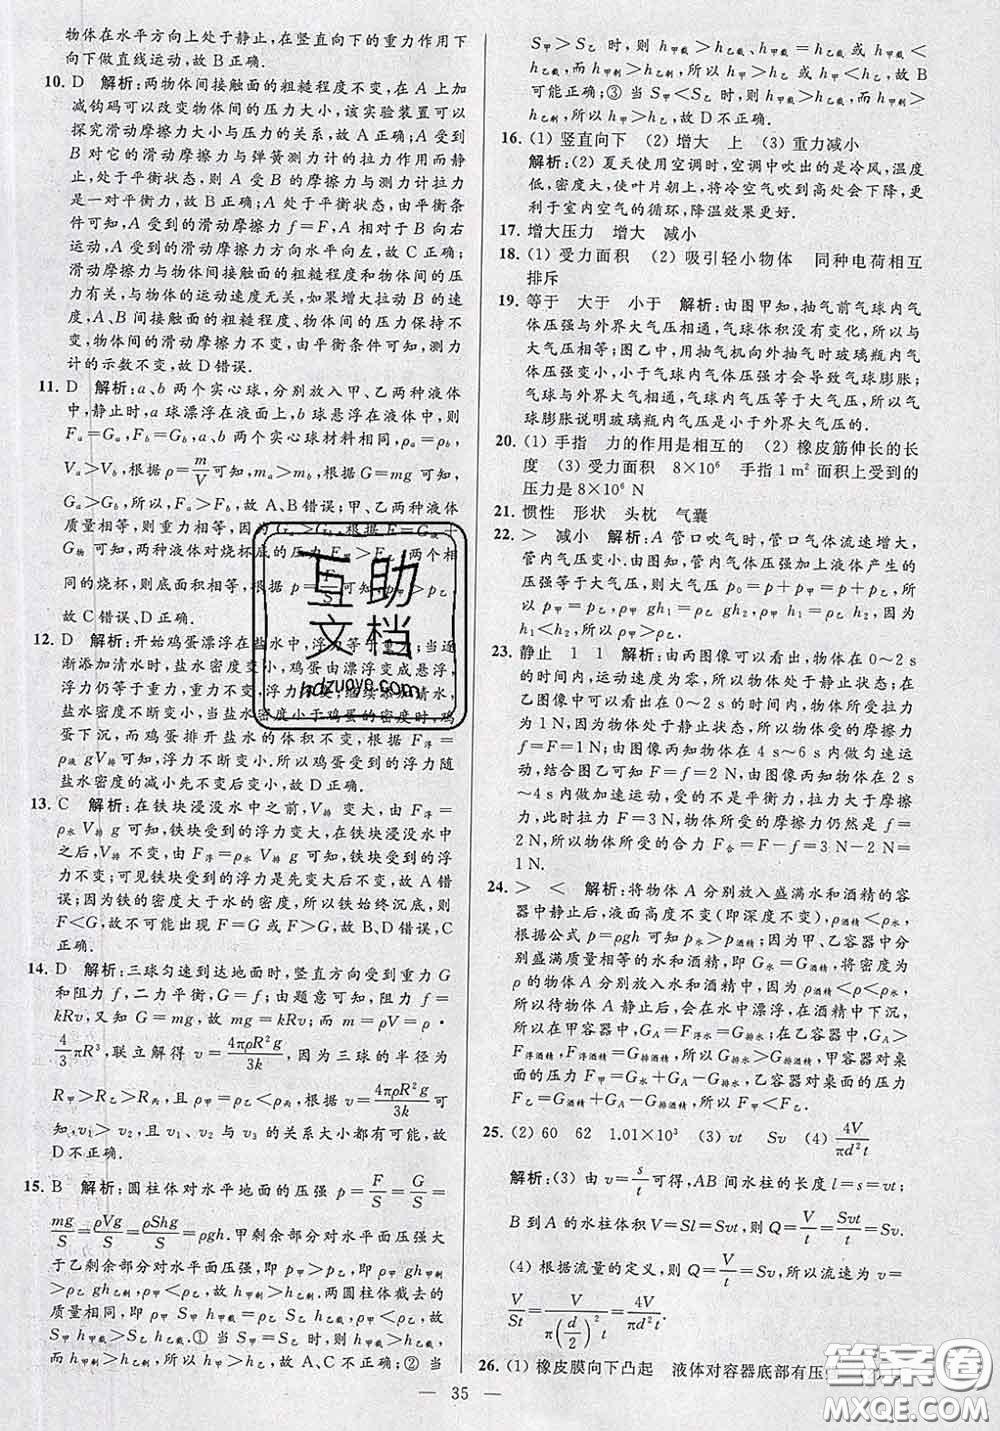 物体在水平方向上处于静止,在竖直向下的重力作用下
向下做直线运动,故 B 正确.
10. D 解析:两物体间接触面的粗糙程度不变,在 A 上加
减钩码可以改变物体间的压力大小,该实验装置可以
探究滑动摩擦力大小与压力的关系,故 A 正确;A 受到
B 对它的滑动摩擦力与弹簧测力计的拉力作用而静
止,处于平衡状态,则 A 受 B 的摩擦力与测力计拉力
是一对平衡力,故 B 正确;A 处于平衡状态,由平衡条
件可知,A 受到的滑动摩擦力 f=F,A 相对于 B 向右
运动,A 受到的滑动摩擦力方向水平向左,故 C 正确;
滑动摩擦力与物体间接触面的粗糙程度和物体间的压
力有关,与物体的运动速度无关,如果增大拉动 B 的速
度,A、B 间接触面的粗糙程度、物体间的压力保持不
变,物体间的滑动摩擦力不变,由平衡条件可知,测力
计的示数不变,故 D 错误.
11. D 解析:a、b 两个实心球,分别放入甲、乙两种液体
中,静止时,a 球漂浮在液面上,b 球悬浮在液体中,则
Fa=Ga,Fb=Gb,a、b 两个实心球材料相同,ρa=ρb,
Va>Vb,根据 ρ=m/V 可知,ma>mb,根据 G=mg 可知,
Ga>Gb,所以,Fa>Fb,故 A、B 错误;甲、乙两种液体
质量相等,则重力相等,因为 Ga>Gb,根据 F=G液+
G物 可知,两种液体对烧杯底的压力 F甲>F乙,两个相
同的烧杯,则底面积相等,根据 p=F/S 可知,p甲>p乙,
故 C 错误、D 正确.
12. D 解析:开始鸡蛋漂浮在盐水中,浮力等于重力;当逐
渐添加清水时,盐水密度变小,鸡蛋由漂浮变成悬浮,
浮力仍等于重力,重力不变,浮力不变;继续添加清水,
盐水密度不断变小,当盐水密度小于鸡蛋的密度时,鸡
蛋下沉,而鸡蛋排开盐水的体积不变,根据 F浮=
ρ液V排g 可知,浮力不断变小.所以鸡蛋受到的浮力随
盐水密度的减小先不变后变小,故 D 正确.
13. C 解析:在铁块浸没水中之前,V排 变大,由 F浮=
ρ水V排g 可知,铁块受到的浮力变大,在铁块浸没水中
之后,V排 不变,由 F浮=ρ水V排g 可知,铁块受到的浮
力不变;可见铁块受到的浮力是先变大后不变,故 A 错
误;因为铁的密度大于水的密度,所以铁块始终沉底,则
F<G,故不可能出现 F=G 或 F>G,故 B、D 错误,C
正确.
14. D 解析:三球匀速到达地面时,竖直方向受到重力 G
和阻力 f,二力平衡,则 f=G;由题意可知,阻力 f=
kRv,又知 G=mg,故 mg=kRv;而 m=ρV=ρ·
4/3πR³,联立解得 v=4πρR²g/3k,因为三球的半径为
R甲>R乙>R丙,且 ρ甲=ρ乙<ρ丙,根据 v=4πρR²g/3k 可
知,v₁>v₂,且 v₁、v₂ 与 v₃ 的关系大小都有可能,故
D 不正确.
15. B 解析:圆柱体对水平地面的压强 p=F/S=G/S=
mg/S=ρVg/S=ρShg/S=ρgh.甲剩余部分对水平面压强大
于乙剩余部分对水平面压强,即 p甲>p乙,即 ρ甲gh甲剩
>ρ乙gh乙剩,因为 ρ甲<ρ乙,故 h甲剩>h乙剩.两圆柱体截去的
质量相同,即 ρ甲S甲h甲截=ρ乙S乙h乙截,因为 ρ甲<ρ乙,故
S甲h甲截>S乙h乙截.① 当 S甲=S乙 时,则 h甲截>h乙截,
而 h甲剩>h乙剩,所以 h甲>h乙,故 A、C 不正确;② 当
S甲>S乙 时,则 h甲截>h乙截、h甲截=h乙截或 h甲截<
h乙截,而 h甲剩>h乙剩,所以 h甲>h乙或 h甲<h乙,故 B
可能正确;③ 当 S甲<S乙 时,则 h甲截>h乙截,而 h甲剩>
h乙剩,所以 h甲>h乙,故 D 不正确.
16. (1) 竖直向下 (2) 增大 上 (3) 重力减小
解析:(2) 夏天使用空调时,空调中吹出的是冷风,温度
低,密度大,使叶片朝上,将冷空气吹到高处会下降,更
利于室内空气的循环,降温效果更好.
17. 增大压力 增大 减小
18. (1) 受力面积 (2) 吸引轻小物体 同种电荷相互
排斥
19. 等于 大于 小于 解析:由图甲知,抽气前气球内气
体压强与外界大气压相通,气球体积没有变化,所以与
大气压相等;图乙中,用抽气机向外抽气时玻璃瓶内气
体压强变小,气球内气体压强才会导致气球膨胀;
气球与大气相通,气球内气体压强与大气压相等,所以气
球膨胀说明玻璃瓶内气压是小于外界大气压的.
20. (1) 手指 力的作用是相互的 (2) 橡皮筋伸长的长
度 (3) 受力面积 8×10⁶ 手指 1 m² 面积上受到的
压力是 8×10⁶ N
21. 惯性 形状 头枕 气囊
22. > 减小 解析:A 管口吹气时,管口气体流速增大,
管内气压变小,由图知,管内气体压强加上液体产生的
压强等于大气压强,则大气压 p₀=p+p甲=p+p乙,
所以 p甲=p乙,ρ甲gh₁=ρ乙gh₂,ρ甲h₁=ρ乙h₂,因为
h₁<h₂,所以 ρ甲>ρ乙.
23. 静止 1 1 解析:由两图像可以看出,物体在 0~2 s
的时间内,运动速度为零,所以物体处于静止状态;在
乙图像可以看出,在 0~2 s 的时间内,物体所受拉力
为 1 N,因为物体处于静止状态,所以受到的摩擦力
f=F=1 N;由图像丙知物体在 4 s~6 s 内做匀速运
动,结合图乙可知 F=f=2 N,由图像丙知物体在 2 s
~4 s 内做加速运动,受的不是平衡力,拉力大于摩擦
力,此时拉力 F=3 N,物体所受的摩擦力仍然是 f=
2 N,所以物体所受的合力 F合=F-f=3 N-2 N=
1 N.
24. > < 解析:将物体 A 分别放入盛满水和酒精的容
器中静止后,液面高度不变(即深度不变),ρ酒精<ρ水,
根据公式 p=ρgh 可知 p水>p酒精;因为甲、乙容器分
别盛满质量相等水和酒精,即 G水=G酒精,将密度为
ρ 的物体 A 分别放入水和酒精中,因为 ρ酒精<ρ<ρ水,
所以待物体 A 静止后,会在水中漂浮,在酒精中下沉,
所以在甲容器中,GA=F浮水=G排水;在乙容器中,GA>
F浮酒精=G排酒精,所以 G排水>G排酒精,甲容器对桌
面的压力 F甲=G水+GA-G排水,乙容器对桌面的压力
F乙=G酒精+GA-G排酒精,所以 F甲<F乙.
25. (2) 60 62 1.01×10³ (3) vt Sv (4) 4V/πd²t
解析:(3) 由 v=s/t 可得,AB 间水柱的长度 l=s=vt;
B 到 A 的水柱体积 V=Sl=Svt,则 Q=V/t=Svt/t=Sv.
(4) 根据流量的定义,则 Q=V/t=Sv,所以流速为 v=
V/St=V/π(d/2)²t=4V/πd²t.
26. (1) 橡皮膜向下凸起 液体对容器底部有压
— 35 —
互助
文档
hdzuoye.com
答案圈
MXQE.COM